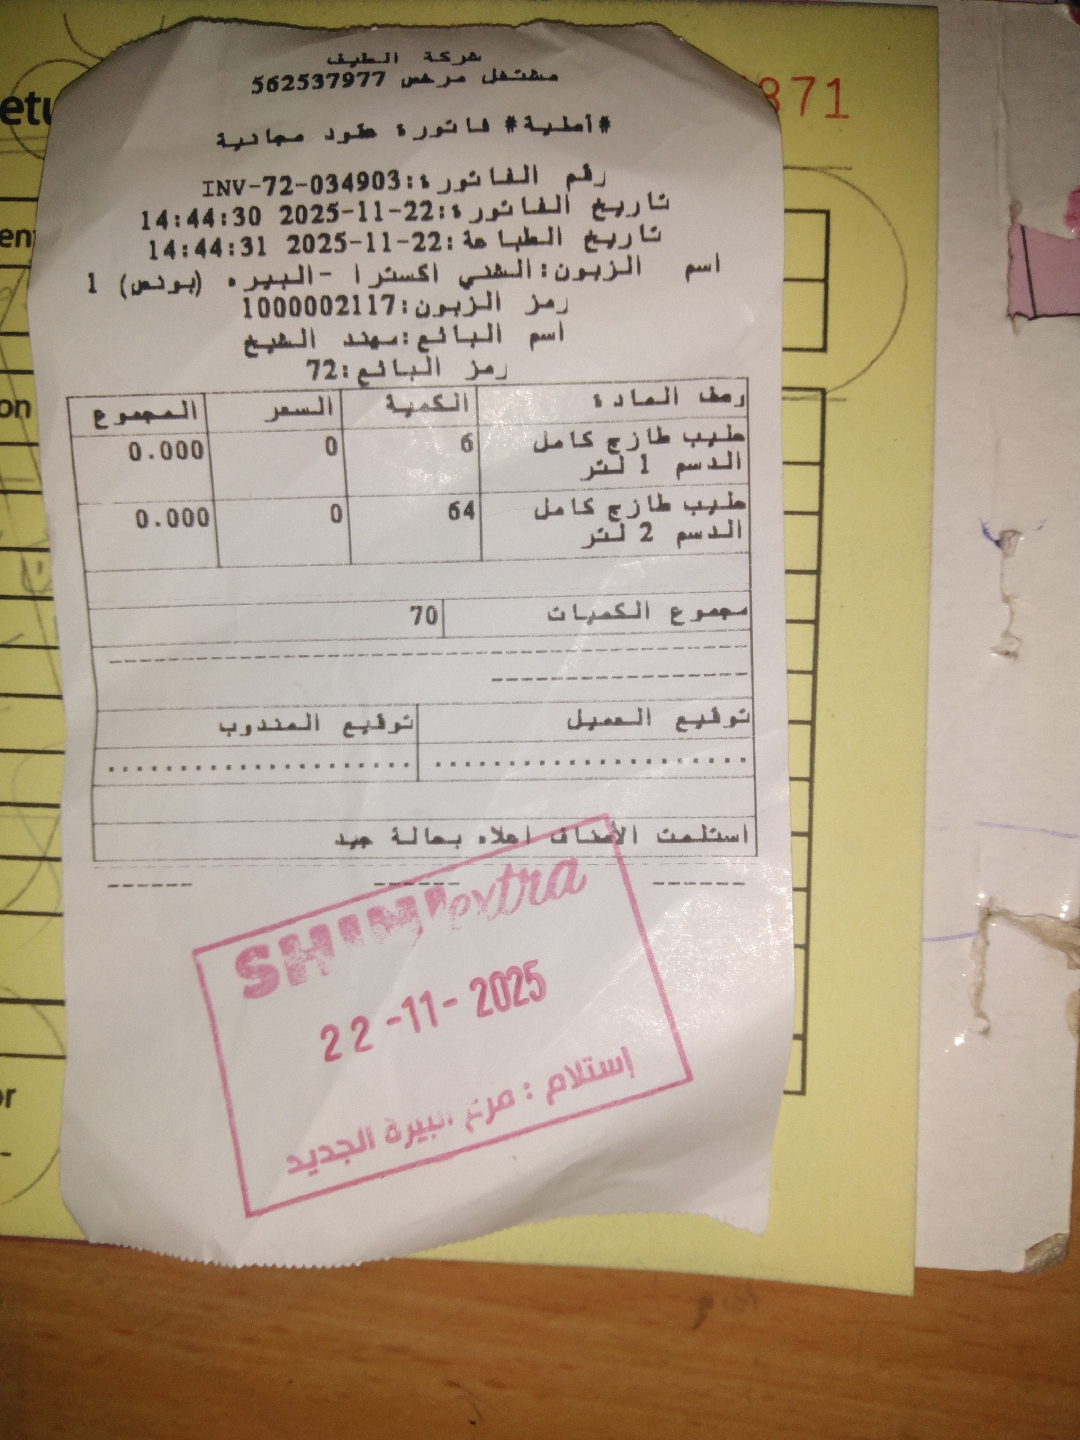 شركة الطيف
مشتغل مرخص 562537977
#أصلية# فاتورة عقود مجانية
رقم الفاتورة:INV-72-034903
تاريخ الفاتورة:22-11-2025 14:44:30
تاريخ الطباعة:22-11-2025 14:44:31
اسم الزبون:الشني اكسترا -البيره (بونص) 1
رمز الزبون:1000002117
اسم البائع:مهند الشيخ
رمز البائع:72
وصف المادة الكمية السعر المجموع
حليب طازج كامل الدسم 1 لتر 6 0 0.000
حليب طازج كامل الدسم 2 لتر 64 0 0.000
مجموع الكميات 70
توقيع العميل توقيع المندوب
استلمت الأصناف اعلاه بحالة جيد
SHINI extra
22-11-2025
إستلام : فرع البيرة الجديد
871